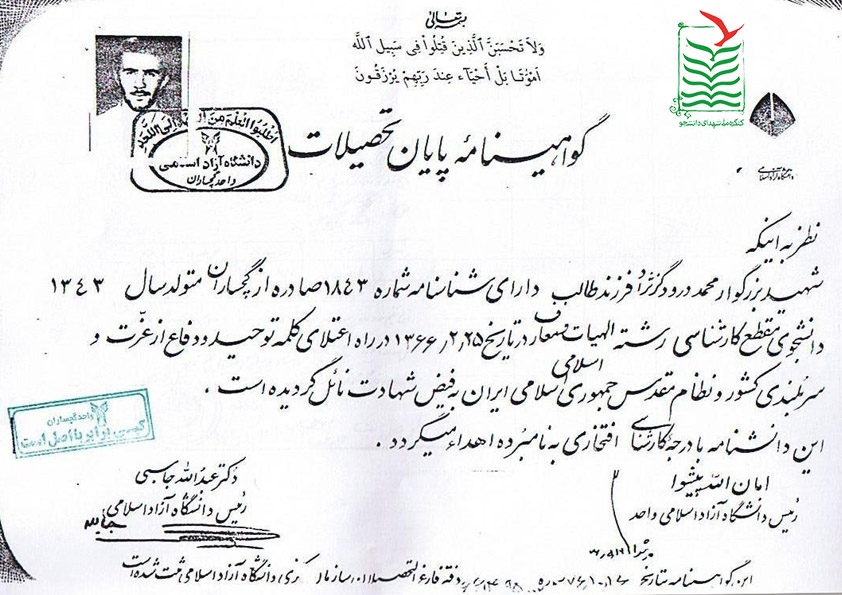 بسمه تعالی
وَلاَ تَحْسَبَنَّ الَّذِينَ قُتِلُوا فِی سَبِيلِ اللَّه
اَمْوَاتًا بَلْ أَحْيَاَء عِندَ رَبِّهِمْ يُرْزَقُونَ
کنگره ملی شهدای دانشجو
دانشگاه آزاد اسلامی
اطلبوا العلم من إلی اللحد
دانشگاه آزاد اسلامی
واحد گچساران
گواهینامه پایان تحصیلات
نظر به اینکه
شهید بزرگوار محمد درودگر نژاد فرزند طالب دارای شناسنامه شماره ۱۸۴۳ صادره از گچساران متولد سال ۱۳۴۳
دانشجوی مقطع کارشناسی رشته الهیات و معارف اسلامی در تاریخ ۱۳۶۶٫۲٫۲۵ در راه اعتلای کلمه توحید و دفاع از عزّت و
سربلندی کشور و نظام مقدس جمهوری اسلامی ایران به فیض شهادت نائل گردیده است .
این دانشنامه با درجهٔ کارشناسی افتخاری به نامبرده اهداء میگردد .
واحد گچساران
کپی برابر با اصل است
امان الله پیشوا
رئیس دانشگاه آزاد اسلامی واحد
دکتر عبدالله جاسبی
رئیس دانشگاه آزاد اسلامی
این گواهینامه بتاریخ دفتر فارغ التحصیلان سازمان مرکزی دانشگاه آزاد اسلامی ثبت شده است